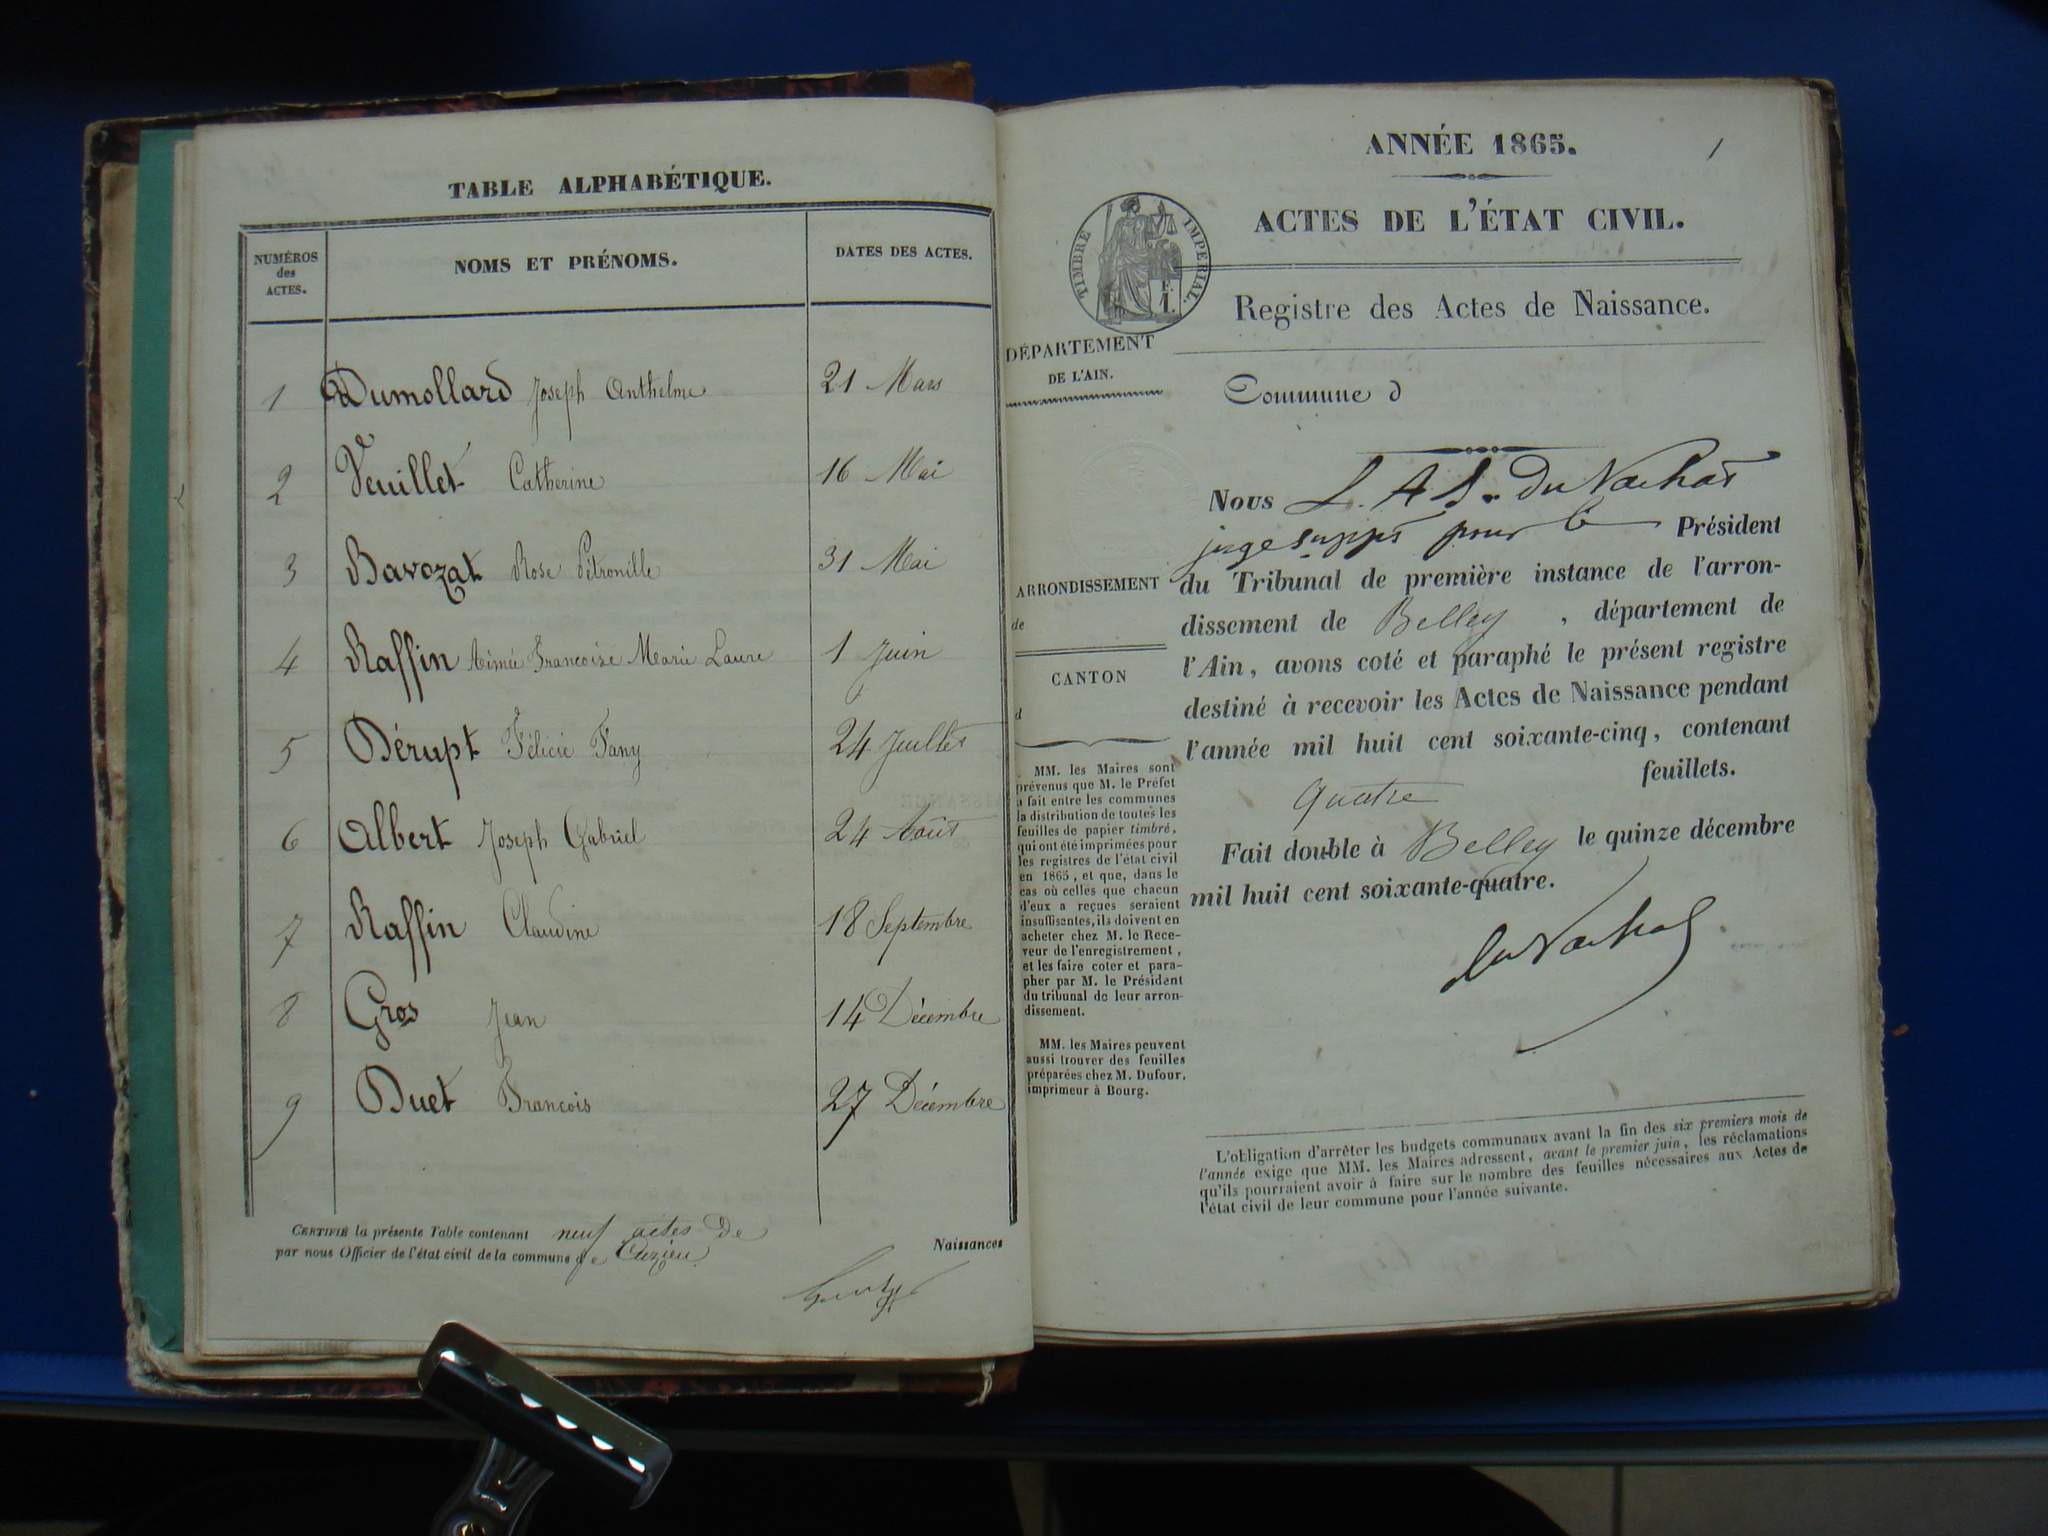 TABLE ALPHABÉTIQUE.
NUMÉROS des ACTES. NOMS ET PRÉNOMS. DATES DES ACTES.
1 Dumollard Joseph Anthelme 21 Mars
2 Veuillet Catherine 16 Mai
3 Bavozat Rose Pétronille 31 Mai
4 Raffin Aimée Francoise Marie Laure 1 Juin
5 Dérupt Félicie Fany 24 Juillet
6 Albert Joseph Gabriel 24 Août
7 Raffin Claudine 18 Septembre
8 Gros Jean 14 Décembre
9 Duet Francois 27 Décembre
CERTIFIÉ la présente Table contenant neuf actes de Naissances
par nous Officier de l'état civil de la commune de Cuzieu
1
ANNÉE 1865.
ACTES DE L'ÉTAT CIVIL.
TIMBRE IMPERIAL.
Registre des Actes de Naissance.
DÉPARTEMENT
DE L'AIN.
Commune d
ARRONDISSEMENT
de
CANTON
d
MM. les Maires sont
prévenus que M. le Préfet
a fait entre les communes
la distribution de toutes les
feuilles de papier timbré,
qui ont été imprimées pour
les registres de l'état civil
en 1865, et que, dans le
cas où celles que chacun
d'eux a reçues seraient
insuffisantes, ils doivent en
acheter chez M. le Rece-
veur de l'enregistrement,
et les faire coter et para-
pher par M. le Président
du tribunal de leur arron-
dissement.
MM. les Maires peuvent
aussi trouver des feuilles
préparées chez M. Dufour,
imprimeur à Bourg.
Nous L. A. S. Du Vachat
juge supps pour le Président
du Tribunal de première instance de l'arron-
dissement de Belley, département de
l'Ain, avons coté et paraphé le présent registre
destiné à recevoir les Actes de Naissance pendant
l'année mil huit cent soixante-cinq, contenant
quatre feuillets.
Fait double à Belley le quinze décembre
mil huit cent soixante-quatre.
du Vachat
L'obligation d'arrêter les budgets communaux avant la fin des six premiers mois de
l'année exige que MM. les Maires adressent, avant le premier juin, les réclamations
qu'ils pourraient avoir à faire sur le nombre des feuilles nécessaires aux Actes de
l'état civil de leur commune pour l'année suivante.